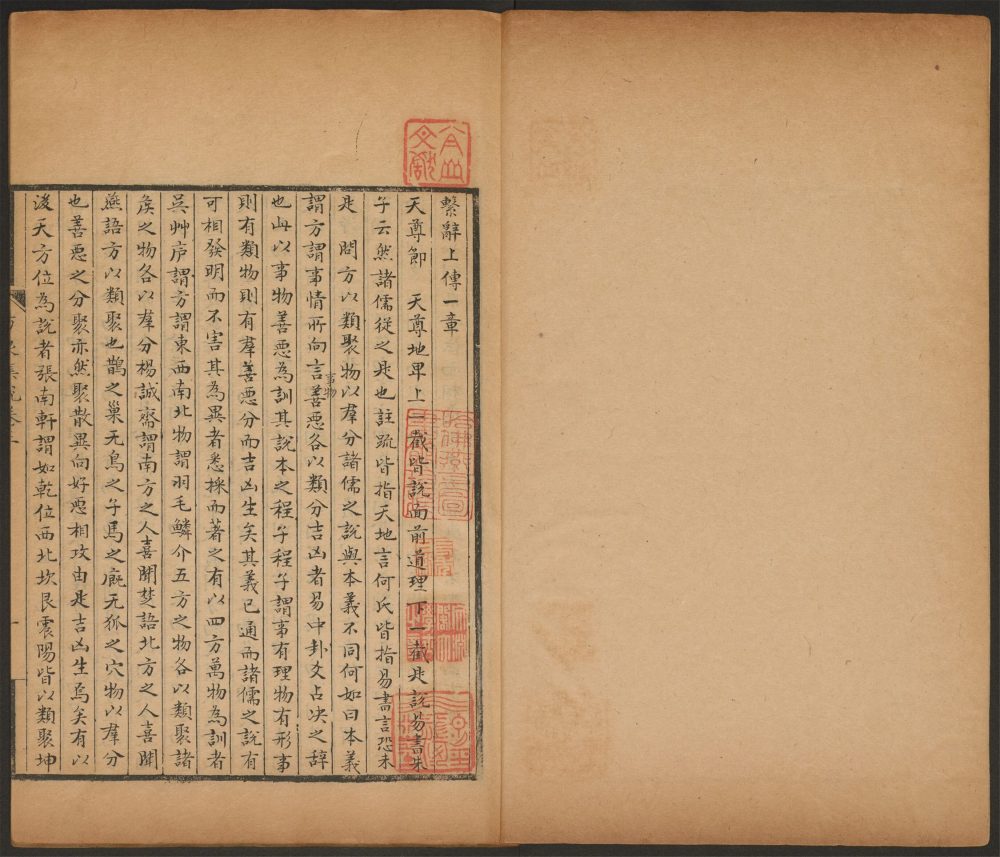 繫辭上傳一章
天尊節　天尊地卑上一截皆說面前道理下一截是說易書朱
子云然諸儒從之是也註䟽皆指天地言何氏皆指易書言恐未
是　問方以類聚物以羣分諸儒之說與本義不同何如曰本義
謂方謂事情所向言事物善惡各以類分吉凶者易中卦爻占决之辭
也此以事物善惡為訓其說本之程子程子謂事有理物有形事
則有類物則有羣善惡分而吉凶生矣其義已通而諸儒之說有
可相發明而不害其為異者悉採而著之有以四方萬物為訓者
吳艸庐謂方謂東西南北物謂羽毛鱗介五方之物各以類聚諸
矦之物各以羣分楊誠齋謂南方之人喜聞楚語北方之人喜聞
燕語方以類聚也鵲之巢无烏之子馬之廐无狐之穴物以羣分
也善惡之分聚亦然聚散異向好惡相攻由是吉凶生焉矣有以
後天方位為說者張南軒謂如乾位西北坎艮震陽皆以類聚坤